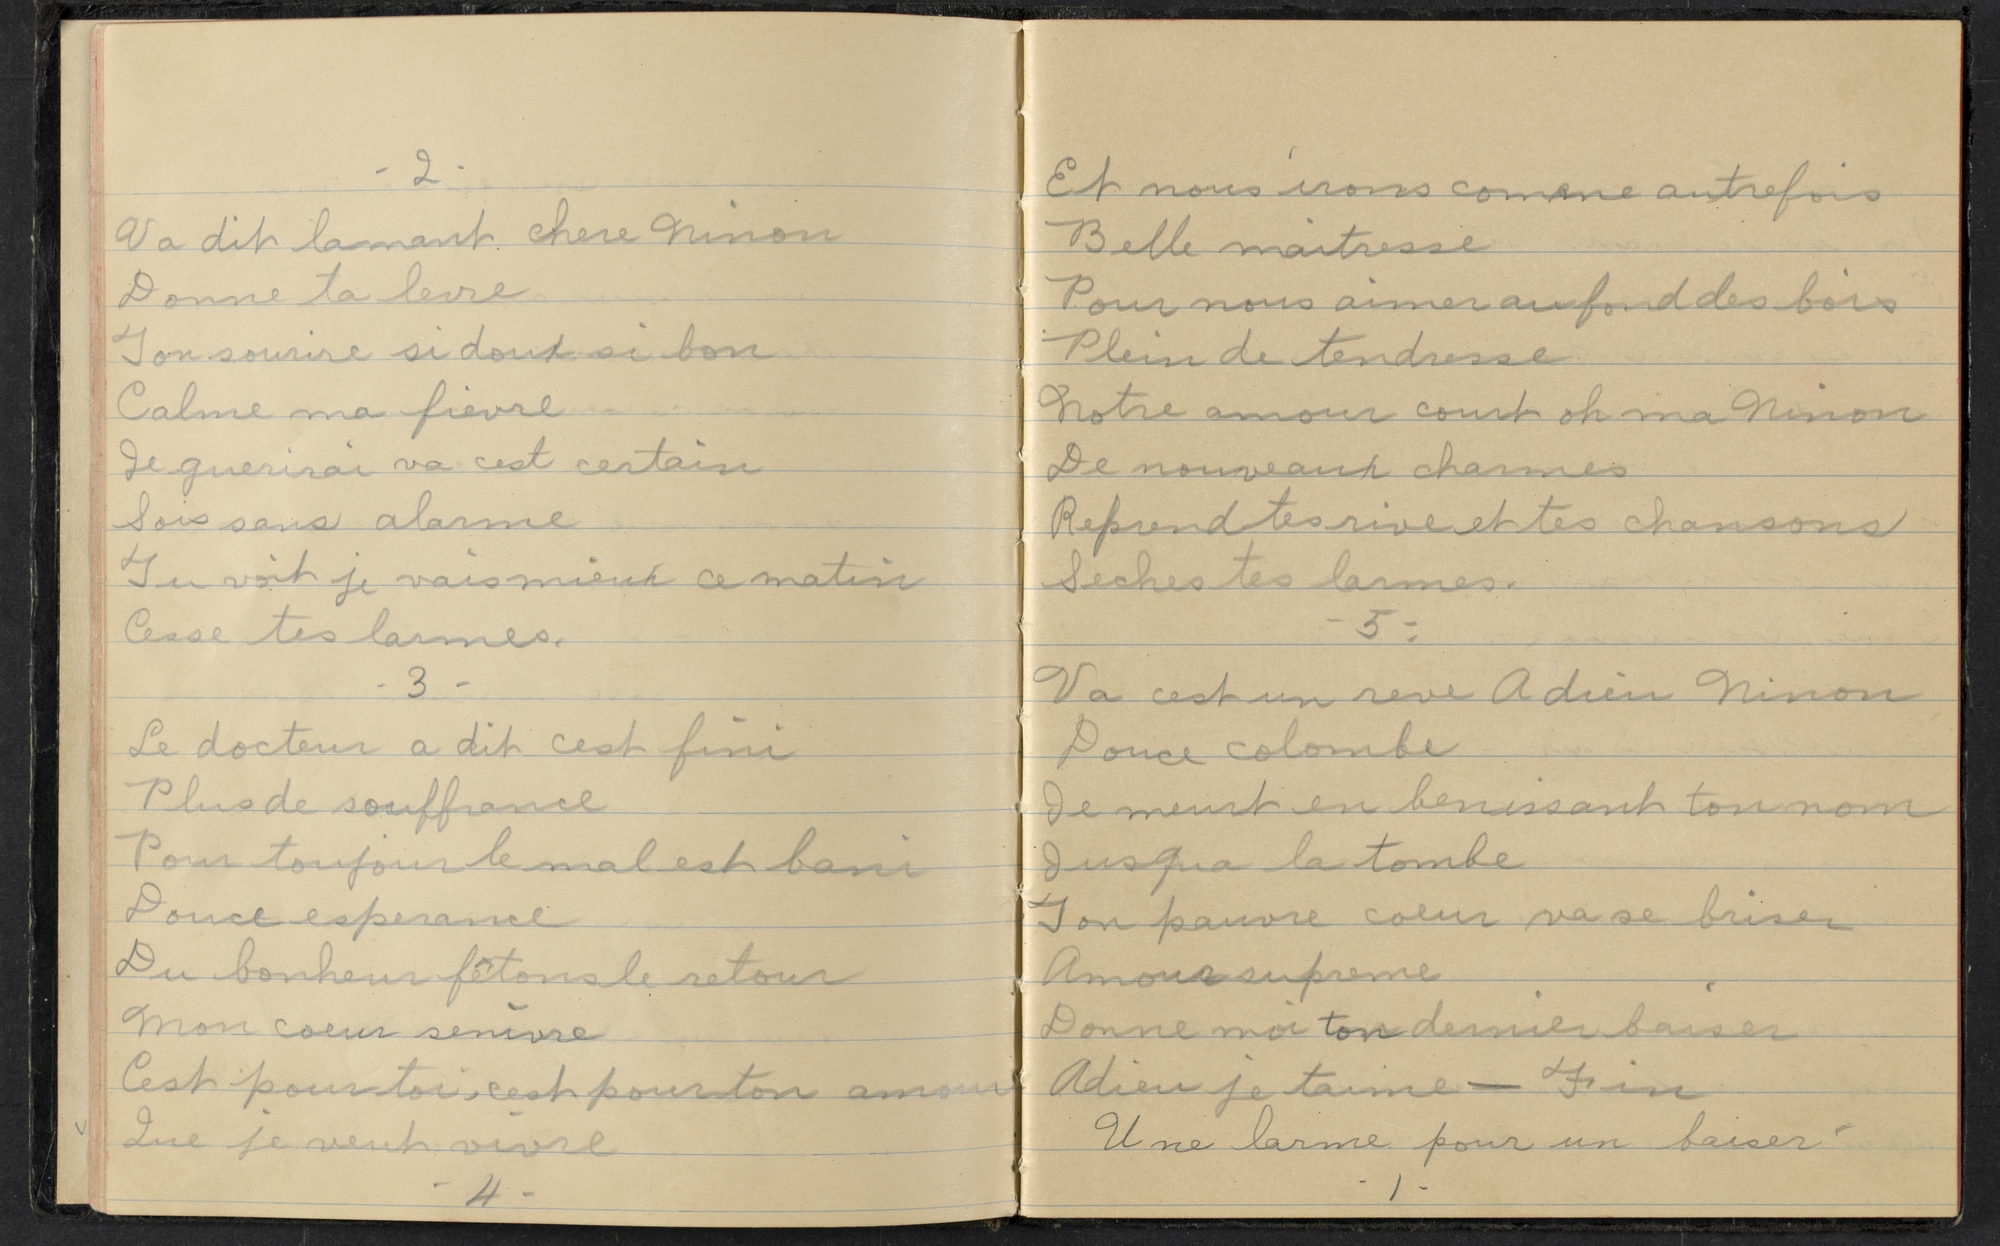 - 2 -
Va dit lamant chere Ninon
Donne ta levre
Ton sourire si doux si bon
Calme ma fievre
Je guerirai va cest certain
Sois sans alarme
Tu voit je vais mieux ce matin
Cesse tes larmes.
- 3 -
Le docteur a dit cest fini
Plus de souffrance
Pour toujour le mal est bani
Douce esperance
Du bonheur fêtons le retour
Mon coeur senivre
Cest pour toi, cest pour ton amour
Que je veut vivre
- 4 -
Et nous irons comme autrefois
Belle maitresse
Pour nous aimer au fond des bois
Plein de tendresse
Notre amour court oh ma Ninon
De nouveaux charmes
Reprend tes rive et tes chansons
Seches tes larmes.
- 5 -
Va cest un reve Adieu Ninon
Douce colombe
Je meurt en benissant ton nom
Jusqua la tombe
Ton pauvre coeur va se briser
Amour supreme
Donne moi ton dernier baiser
Adieu je taime — Fin
Une larme pour un baiser
- 1 -